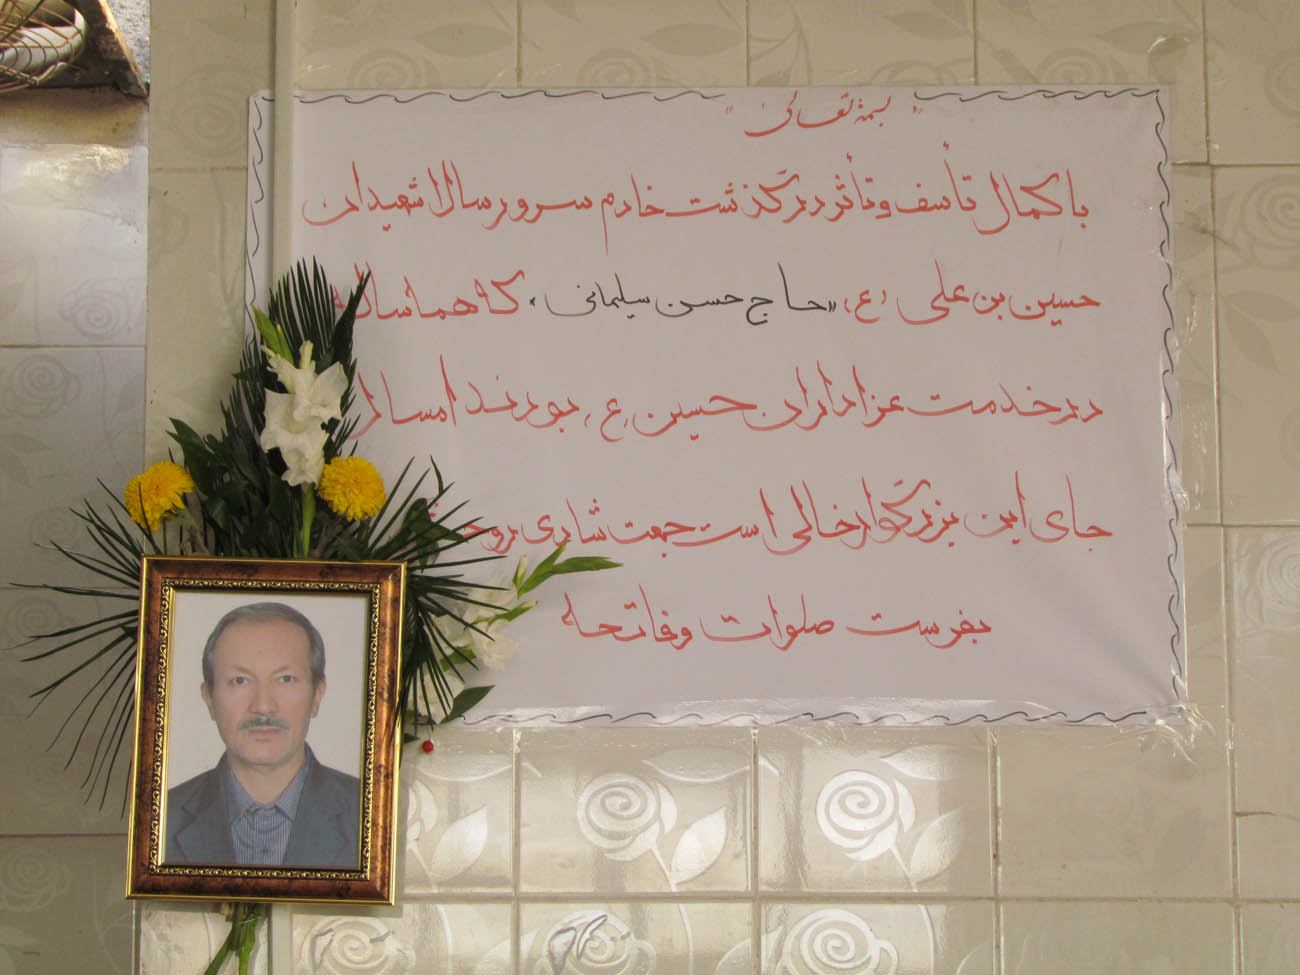 « بسمه تعالی »
با کمال تأسف و تأثر درگذشت خادم سرور سالار شهیدان
حسین بن علی (ع) «حاج حسن سلیمانی» که هر ساله
در خدمت عزاداران حسین (ع) بودند امسال
جای این بزرگوار خالی است جهت شادی روح
بفرست صلوات و فاتحه